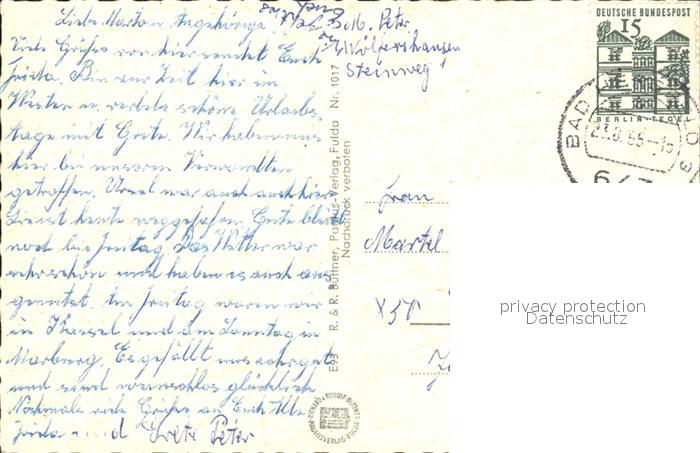 Liebe Marta u. Angehörige!
Viele Grüße von hier sendet Euch
Frieda. Bin zur Zeit hier in
Westen u. verlebe schöne Urlaubs-
tage mit Grete. Wir haben uns
hier bei unseren Verwandten
getroffen. Ursel war auch auch hier
Sie ist heute weggefahren. Grete bleibt
noch bis Freitag. Das Wetter war
sehr schön und haben es auch aus-
genutzt. Am Freitag waren wir
in Kassel und am Sonntag in
Marburg. Es gefällt uns sehr gut
und sind wunschlos glücklich
Nochmals viele Grüße an Euch Alle
Frieda und Grete Peter
b. M. Peter
Wölfershausen
Steinweg 1
E93 R. & R. Büttner, Parzlus-Verlag, Fulda Nr. 1017
Nachdruck verboten
DEUTSCHE BUNDESPOST
15
BERLIN-TEGEL
BAD
23.8.65-16
643
Frau
Martel
X 50
privacy protection
Datenschutz